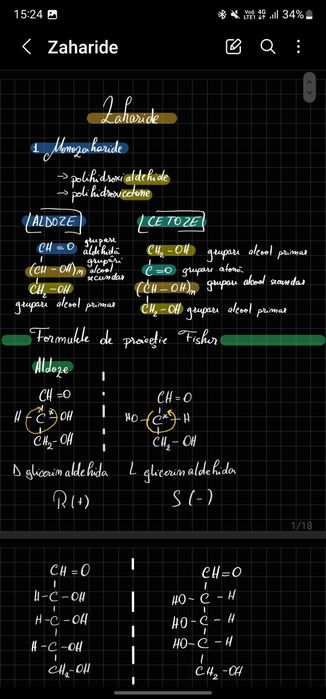 15:24 Vo) 4G LTE1 34%
Zaharide
Zaharide
1 Monozaharide
→ polihidroxialdehide
→ polihidroxicetone
ALDOZE
CETOZE
CH=O grupare aldehidă
(CH-OH)n grupări alcool secundar
CH2-OH
grupari alcool primar
CH2-OH grupari alcool primar
C=O grupare
(CH-OH)n grupari alcool secundar
CH2-OH grupari alcool primar
Formulele de proiecție Fisher
Aldoze
CH=O
H C* OH
CH2-OH
CH=O
HO- C* -H
CH2-OH
D glicerin aldehida
L glicerin aldehida
R(+)
S(-)
1/18
CH=O
H-C-OH
H-C-OH
H-C-OH
CH2-OH
CH=O
HO-C-H
HO-C-H
HO-C-H
CH2-OH